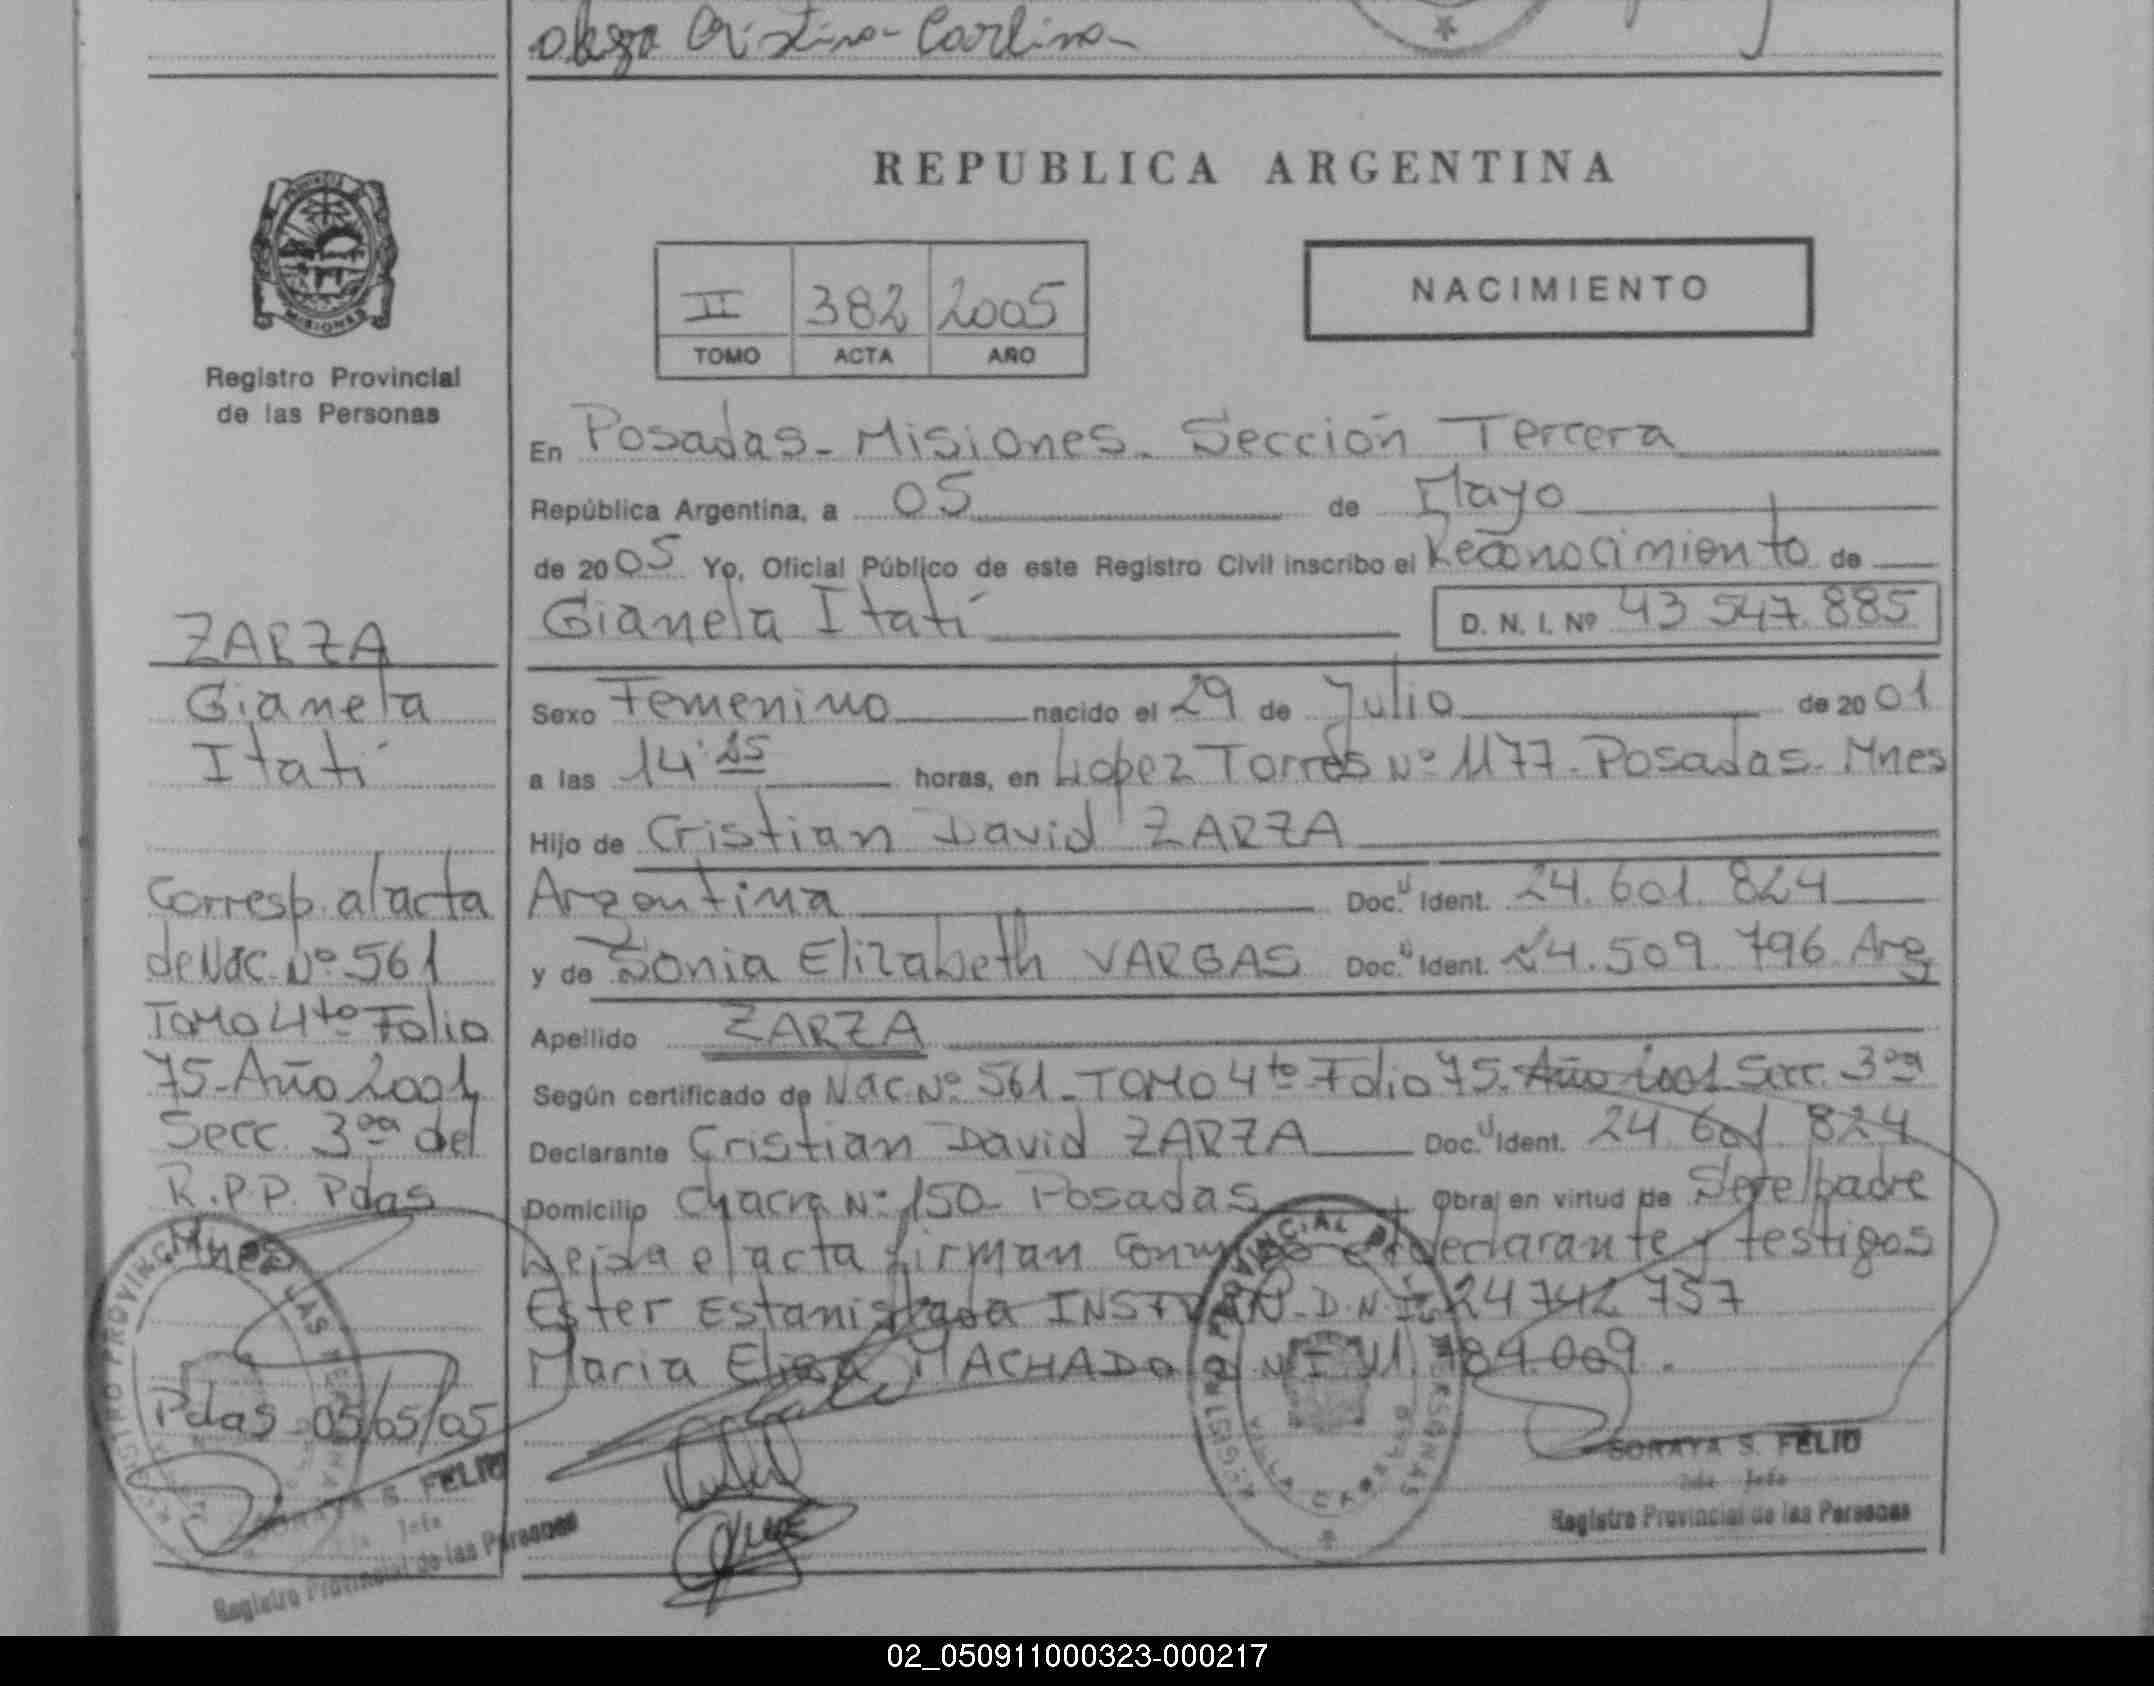 Cristina Carlina
REPUBLICA ARGENTINA
NACIMIENTO
II 382 2005
TOMO ACTA AÑO
MISIONES
Registro Provincial
de las Personas
En Posadas - Misiones - Sección Tercera
República Argentina, a 05 de Mayo
de 2005 Yo, Oficial Público de este Registro Civil inscribo el Reconocimiento de
Gianela Itatí D. N. I. Nº 43 547 885
Sexo Femenino nacido el 29 de Julio de 2001
a las 14:15 horas, en Lopez Torres Nº 1177 - Posadas - Mnes
Hijo de Cristian David ZARZA
Argentina Doc. Ident. 24.601.824
y de Sonia Elizabeth VARGAS Doc. Ident. 24.509.796 Arg
Apellido ZARZA
Según certificado de Nac. Nº 561 - TOMO 4to Folio 75 - Año 2001 Secc. 3era
Declarante Cristian David ZARZA Doc. Ident. 24 601 824
Domicilio Chacra Nº 150 - Posadas Obra en virtud de Ser el padre
Leida el acta firman declarante y testigos
Ester D.N.I. 24742 737
Maria Elisa MACHADO
ZARZA
Gianela
Itatí
Corresp. al acta
de Nac. Nº 561
TOMO 4to Folio
75 - Año 2001
Secc. 3era del
R.P.P. Pdas
Mnes
Pdas 05/05/05
SORAYA S. FELIU
Jefa
Registro Provincial de las Personas
SORAYA S. FELIU
Jefa
Registro Provincial de las Personas
02_050911000323-000217